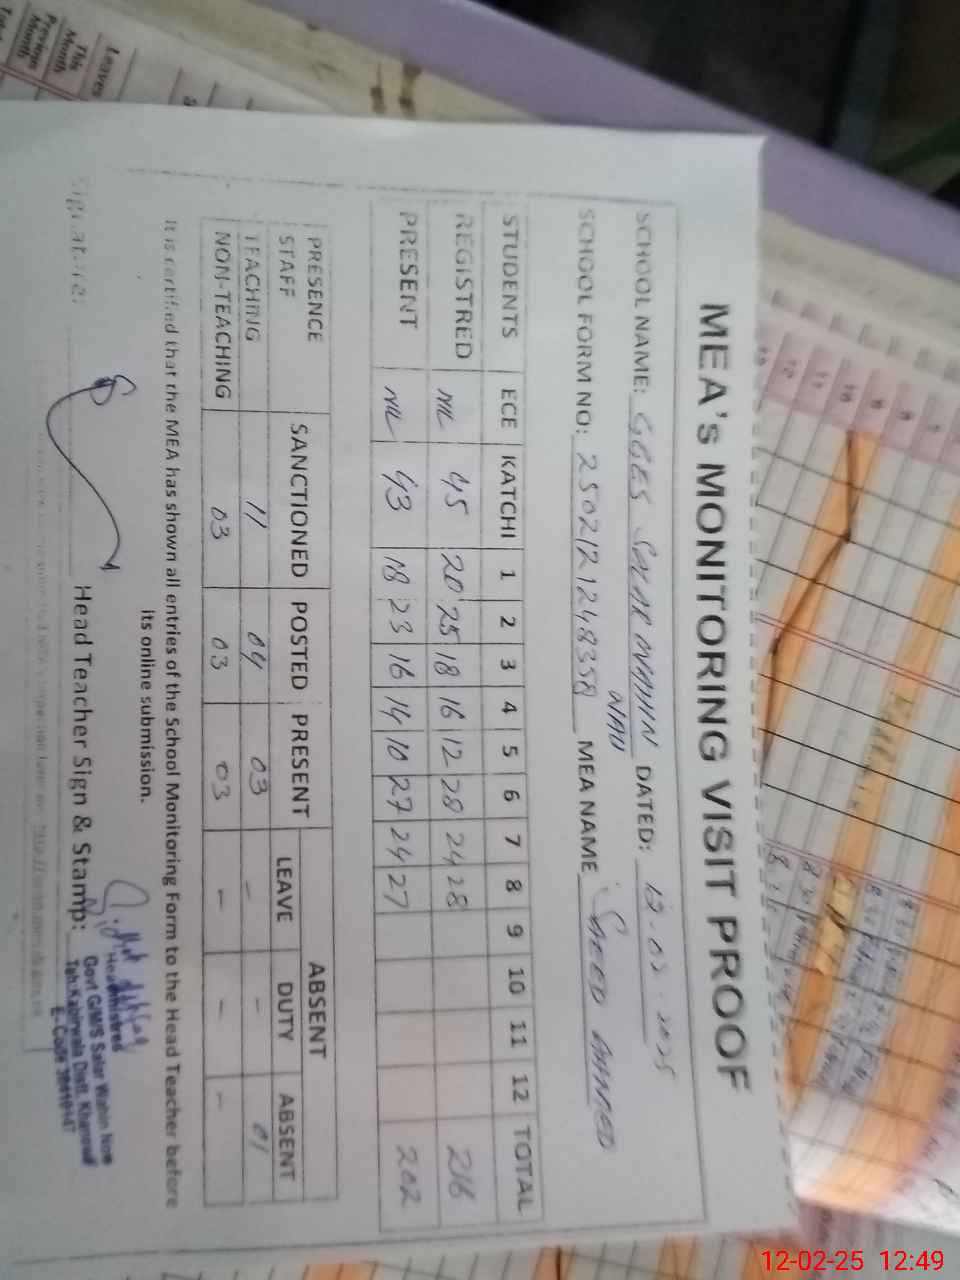 MEA'S MONITORING VISIT PROOF
SCHOOL NAME: GGES WAHIN DATED: 12.02.2025
NAU
SCHOOL FORM NO: 2502121248358 MEA NAME SAEED AHMED
STUDENTS ECE KATCHI 1 2 3 4 5 6 7 8 9 10 11 12 TOTAL
REGISTRED NIL 45 20 25 18 16 12 28 24 28 216
PRESENT NIL 43 18 23 16 14 10 27 24 27 202
PRESENCE STAFF SANCTIONED POSTED PRESENT ABSENT
LEAVE DUTY ABSENT
TEACHING 11 04 03 - - 01
NON-TEACHING 03 03 03 - - -
It is certified that the MEA has shown all entries of the School Monitoring Form to the Head Teacher before
its online submission.
Signature: Head Teacher Sign & Stamp:
Headmistress
Govt G/M/S Salar Wahin Now
Teh: Kabirwala Distt. Khanewal
E-Code
Leaves
This Month
Previous Month
12-02-25 12:49